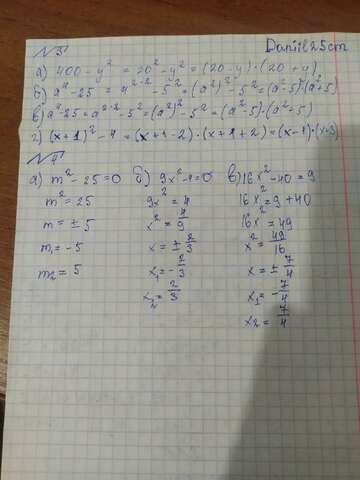 N3
Daniil25cm
а) 400 - y² = 20² - y² = (20-y)·(20+y)
б) a⁴-25 = a²·² - 5² = (a²)² - 5² = (a²-5)·(a²+5)
в) a⁴-25 = a²·² - 5² = (a²)² - 5² = (a²-5)·(a²-5)
г) (x+1)² - 4 = (x+1-2)·(x+1+2) = (x-1)·(x+3)
N4
а) m² - 25 = 0
m² = 25
m = ± 5
m₁ = -5
m₂ = 5
б) 9x² - 4 = 0
9x² = 4
x² = 4/9
x = ± 2/3
x₁ = - 2/3
x₂ = 2/3
в) 16x² - 40 = 9
16x² = 9 + 40
16x² = 49
x² = 49/16
x = ± 7/4
x₁ = - 7/4
x₂ = 7/4